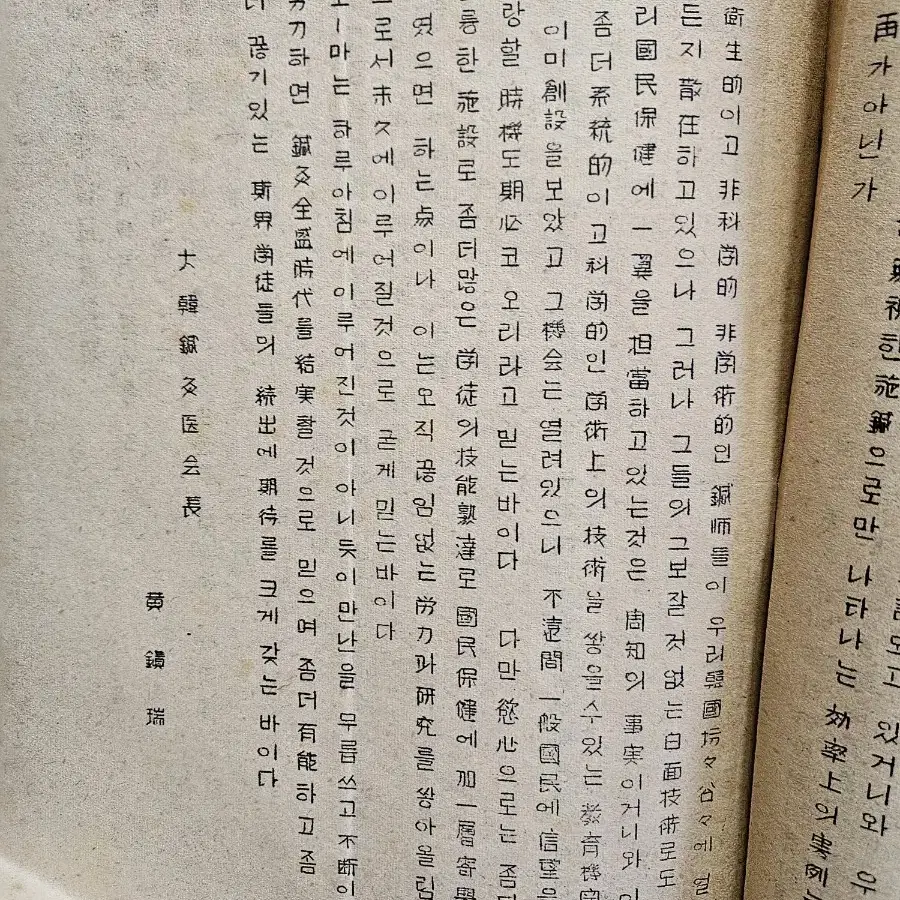 있거니와
한 施鍼으로만 나타나는 効率上의 実例는
再가 아닌가
衛生的이고 非科学的 非学術的인 鍼师들이 우리韓國坊々谷々에 얼
든지 散在하고있으나 그러나 그들의 그보잘것 없는 白面技術로도
리國民保健에 一翼을 担當하고있는것은 周知의 事実이거니와
좀더系統的이고科学的인 学術上의 技術을 쌓을수있는 教育機
이미創設을보았고 그機会는 열려있으니 不遠間 一般國民에信望을
랑할 時機도期必코 오리라고 믿는바이다 다만 慾心으로는 좀더
륭한 施設로 좀더많은 学徒의技能熟達로 國民保健에 加一層寄與
였으면 하는点이나 이는오직 끊임없는 労力과研究를 쌓아올림
으로서 未久에이루어질것으로 굳게믿는바이다
로-마는 하루아침에이루어진것이 아니듯이만난을 무릅쓰고不断이
労力하면 鍼灸全盛時代를結実할것으로 믿으며 좀더有能하고좀
더 끊기있는 斯界学徒들의 続出에期待를크게갖는바이다
大韓鍼灸医会長
黄鎭瑞